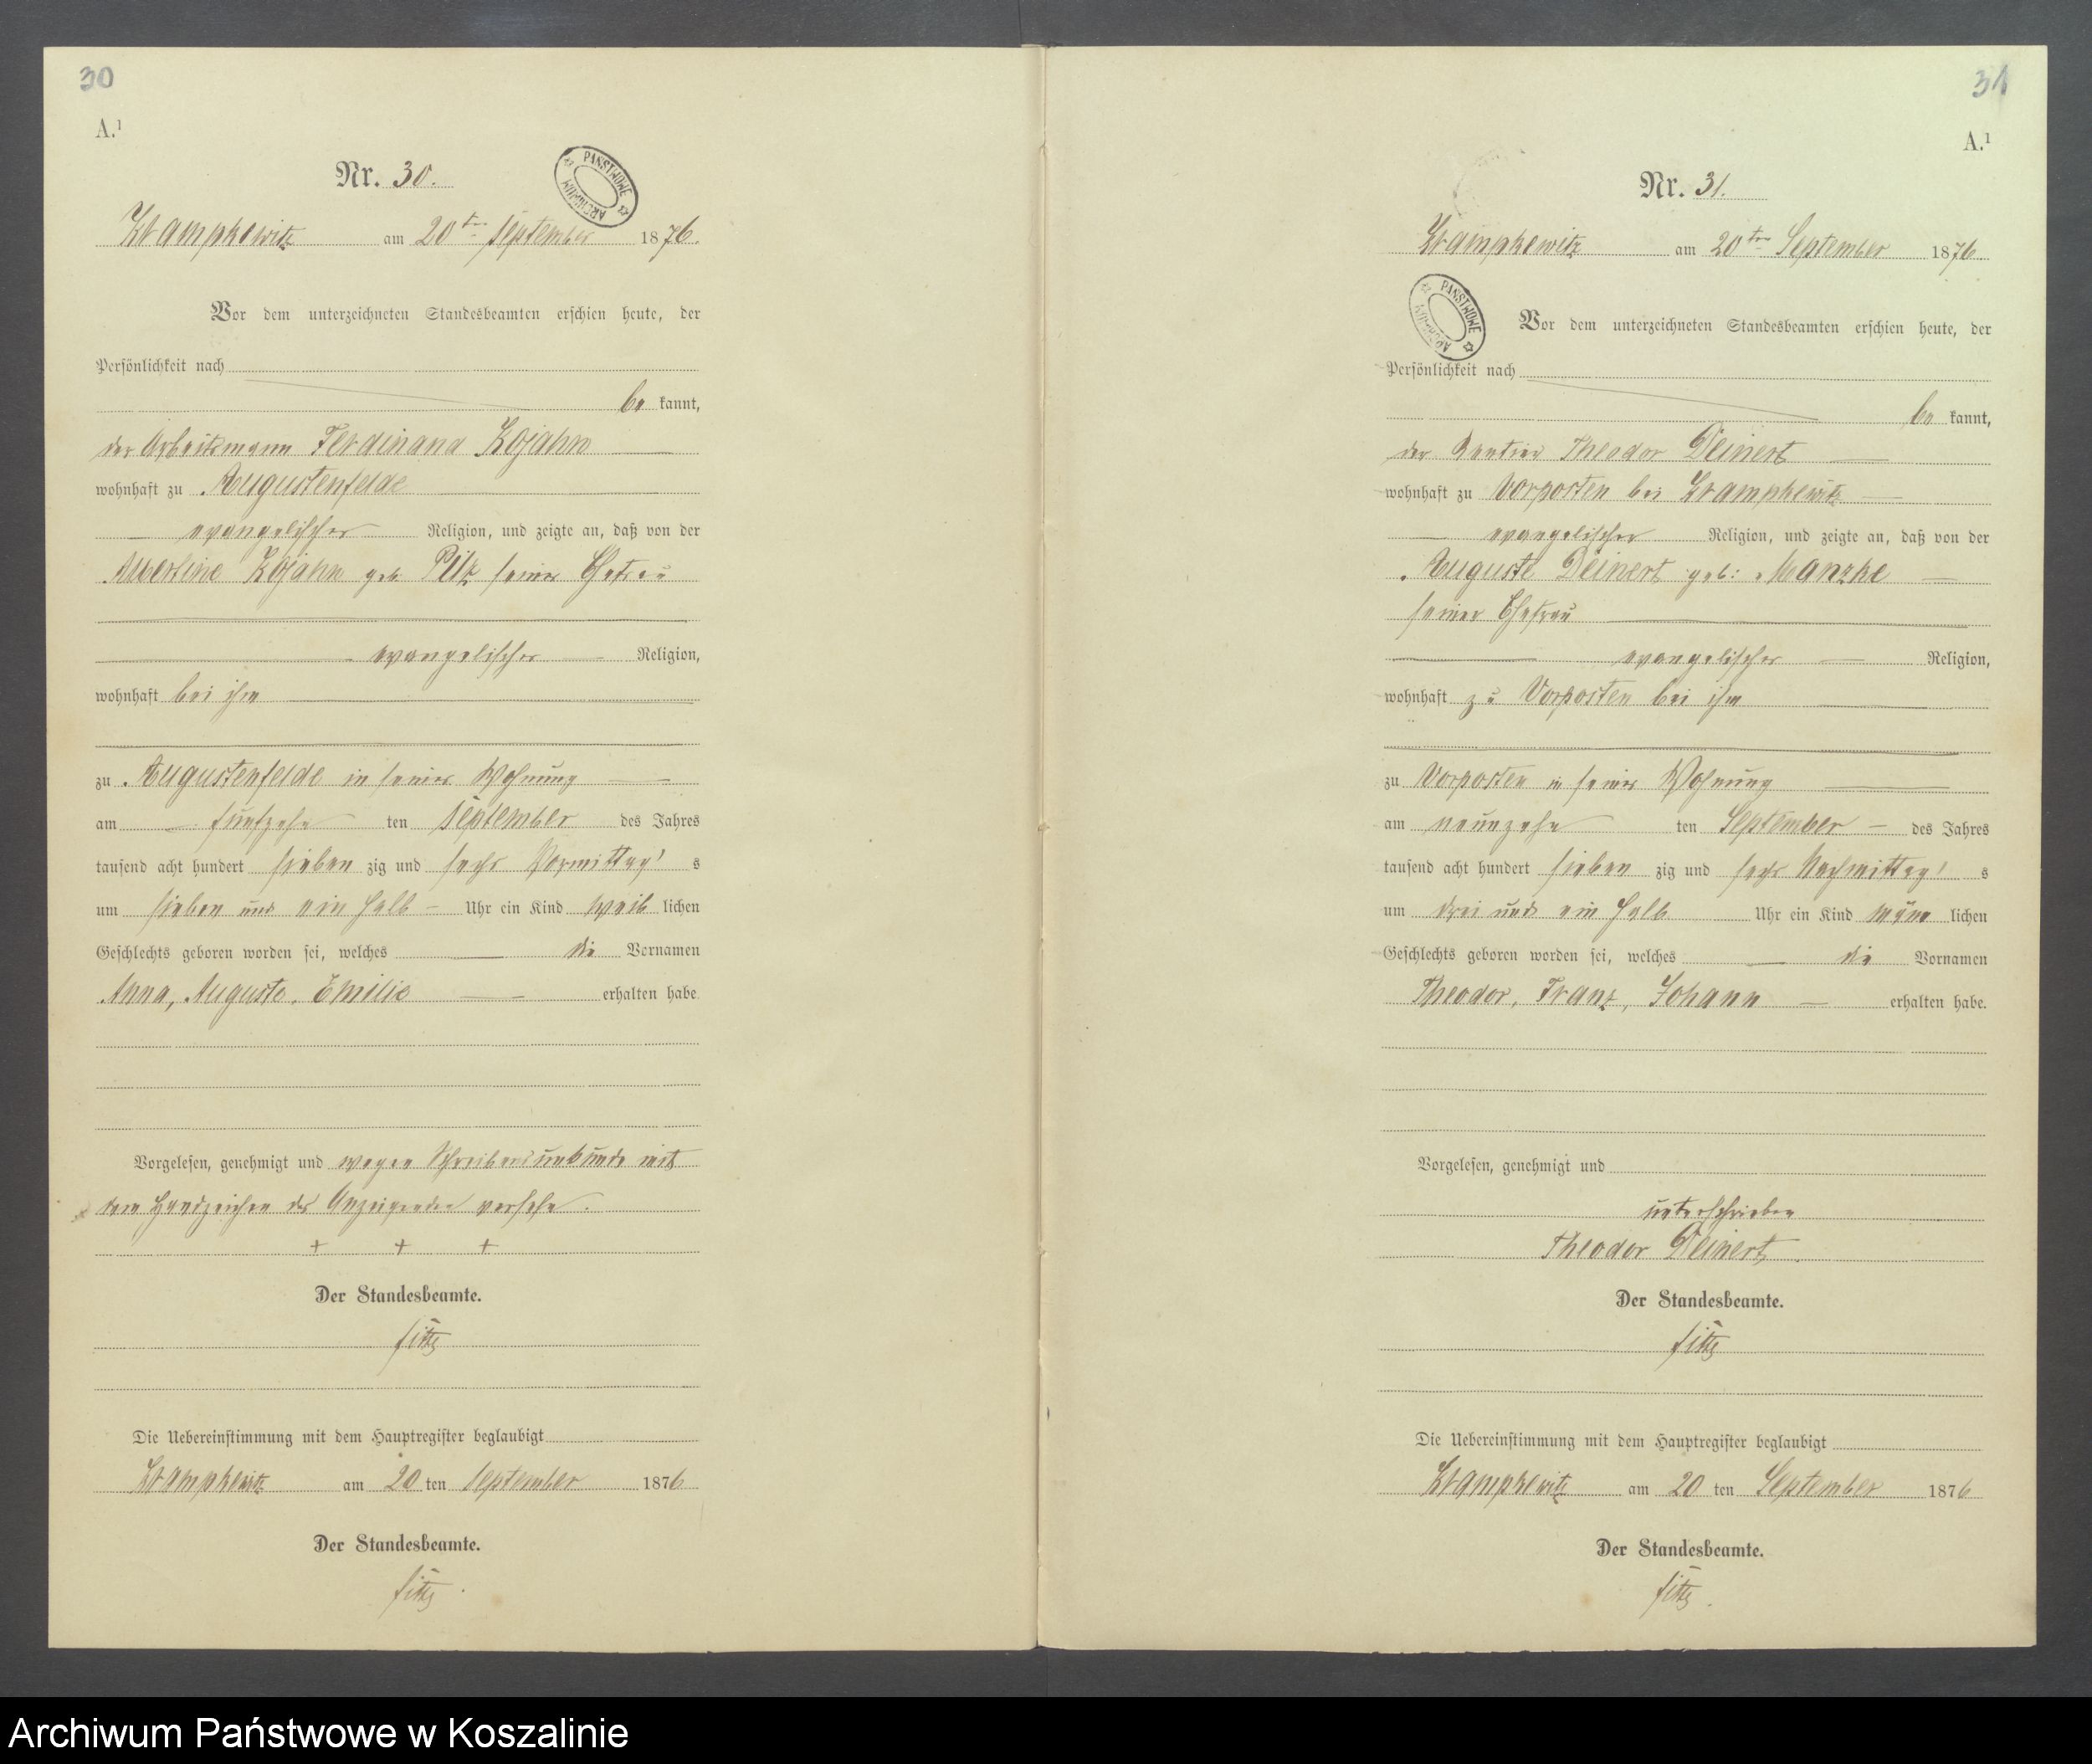 30
A.¹
Nr. 30.
PAŃSTWOWE ARCHIWUM
Krampkewitz am 20ten September 1876.
Vor dem unterzeichneten Standesbeamten erschien heute, der
Persönlichkeit nach
be kannt,
der Arbeitsmann Ferdinand Kojahn
wohnhaft zu Augustenfelde
evangelischer Religion, und zeigte an, daß von der
Albertine Kojahn geb. Pilz seiner Ehefrau
evangelischer Religion,
wohnhaft bei ihm
zu Augustenfelde in seiner Wohnung
am fünfzehn ten September des Jahres
tausend acht hundert sieben zig und sechs Vormittag s
um sieben und ein halb Uhr ein Kind weib lichen
Geschlechts geboren worden sei, welches die Vornamen
Anna, Auguste, Emilie erhalten habe.
Vorgelesen, genehmigt und wegen Schreibensunkunde mit
dem Handzeichen des Anzeigenden versehn.
+ + +
Der Standesbeamte.
Die Uebereinstimmung mit dem Hauptregister beglaubigt
Krampkewitz am 20 ten September 1876
Der Standesbeamte.
31
A.¹
Nr. 31.
Krampkewitz am 20ten September 1876
PAŃSTWOWE ARCHIWUM
Vor dem unterzeichneten Standesbeamten erschien heute, der
Persönlichkeit nach
be kannt,
der Rentier Theodor Deinert
wohnhaft zu Vorposten bei Krampkewitz
evangelischer Religion, und zeigte an, daß von der
Auguste Deinert geb: Manzke
seiner Ehefrau
evangelischer Religion,
wohnhaft zu Vorposten bei ihm
zu Vorposten in seiner Wohnung
am neunzehn ten September des Jahres
tausend acht hundert sieben zig und sechs Nachmittag s
um drei und ein halb Uhr ein Kind män lichen
Geschlechts geboren worden sei, welches die Vornamen
Theodor, Franz, Johann erhalten habe.
Vorgelesen, genehmigt und
unterschrieben
Theodor Deinert
Der Standesbeamte.
Die Uebereinstimmung mit dem Hauptregister beglaubigt
Krampkewitz am 20 ten September 1876
Der Standesbeamte.
Archiwum Państwowe w Koszalinie